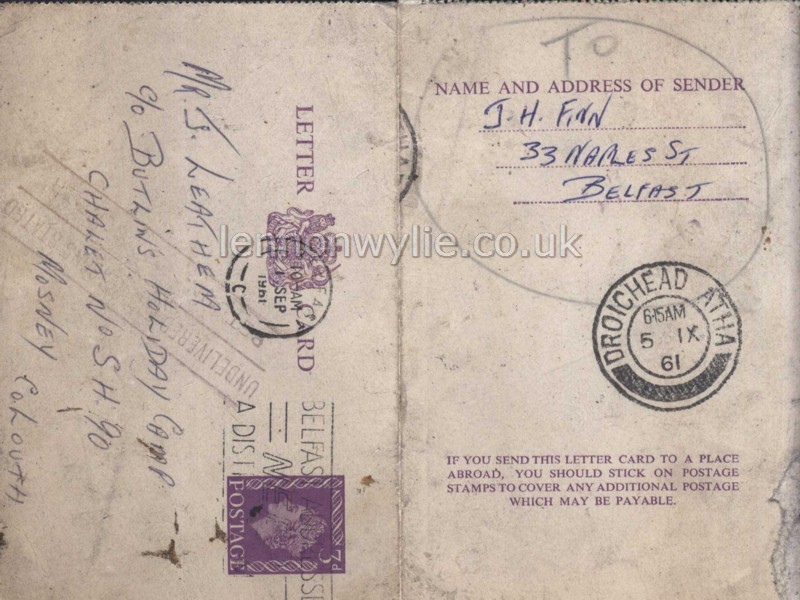 LETTER CARD
Mr. J. LEATHEM
c/o BUTLIN'S HOLIDAY CAMP
CHALET No S H 90
MOSNEY Co. LOUTH
UNDELIVERED
10 AM
1 SEP
1961
C
BELFAST
A DIST
POSTAGE
3D
TO
NAME AND ADDRESS OF SENDER
J. H. FINN
33 NAPLES ST
BELFAST
lennonwylie.co.uk
DROICHEAD ATHA
6.15AM
5 IX
61
IF YOU SEND THIS LETTER CARD TO A PLACE
ABROAD, YOU SHOULD STICK ON POSTAGE
STAMPS TO COVER ANY ADDITIONAL POSTAGE
WHICH MAY BE PAYABLE.